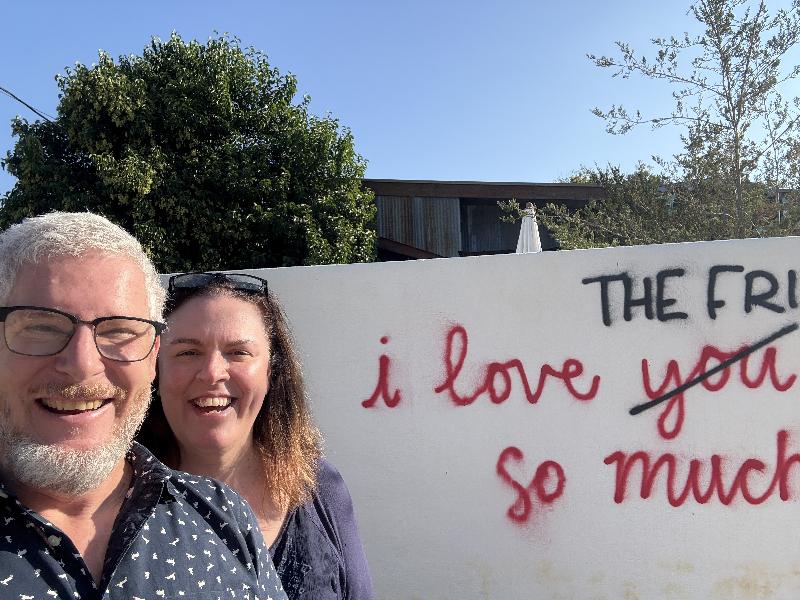 THE FRI
i love you
so much